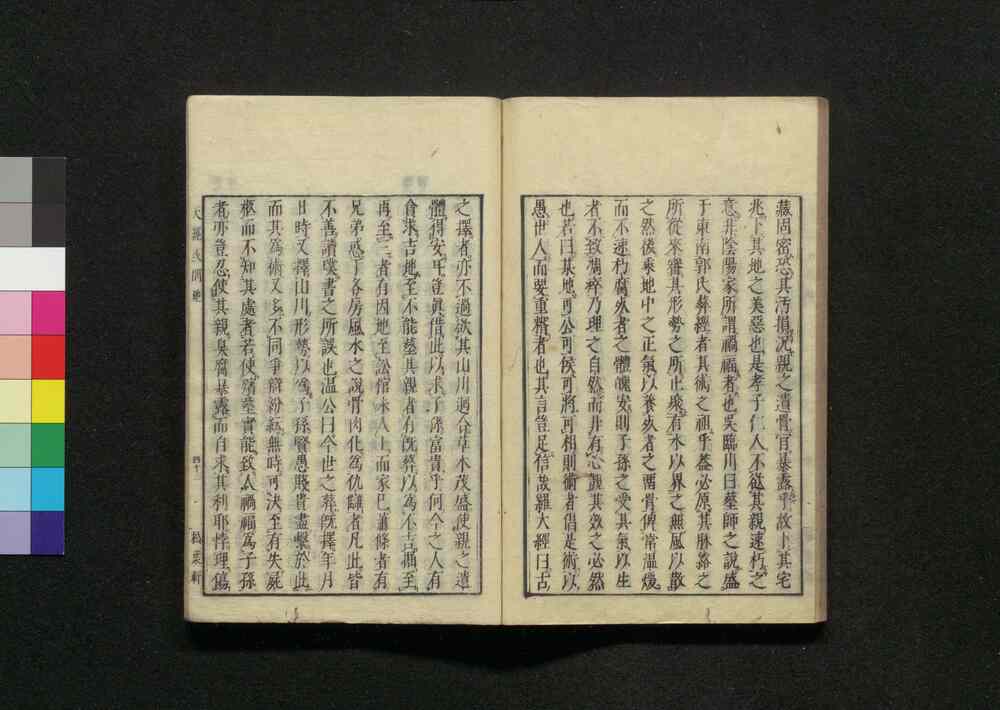 藏固密恐其汚損況親之遺骨官暴露乎故卜其宅
兆卜其地之美惡也是孝子仁人不欲其親速朽之
意非陰陽家所謂禍福者也吳臨川曰墓師之說盛
于東南郭氏葬經者其術之祖乎蓋必原其脉絡之
所從來審其形勢之所止聚有水以界之無風以散
之然後乘地中之正氣以養死者之骨俾常溫煖
而不速朽腐死者之體魄安則子孫之受其氣以生
者不致凋瘁乃理之自然而非有心覬其效之必然
也若曰某地可公可侯可將可相則術者倡是術以
愚世人而要重糈者也其言豈足信哉羅大經曰古
之擇者亦不過欲其山川迴合草木茂盛使親之遺
體得安耳豈眞借此以求子孫富貴乎何今之人有
貪求吉地至不能葬其親者有既葬以為不吉掘至
再至三者有因地至訟棺未入土而家已蕭條者有
兄弟惑于各房風水之說骨肉化為仇讎者凡此皆
不善讀璞書之所誤也溫公曰今世之葬旣擇年月
日時又擇山川形勢以為子孫賢愚賤貴盡繫於此
而其為術又多不同爭辯紛紜無時可決至有失屍
柩而不知其處者若使殯葬實能致人禍福為子孫
者亦豈忍使其親臭腐暴露而自求其利耶悖理傷
四十